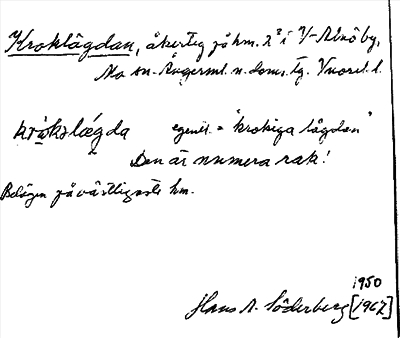 Kroklägdan, åkerteg på hm. 2² i V-Alnö by,
Alnö sn. Ångerml. n. doms. Tg. Vnorrl. l.
krokslægda egentl. = "krokiga lägdan"
Den är numera rak!
Belägen på västligaste hm.
1950
Hans A. Söderberg [1967]